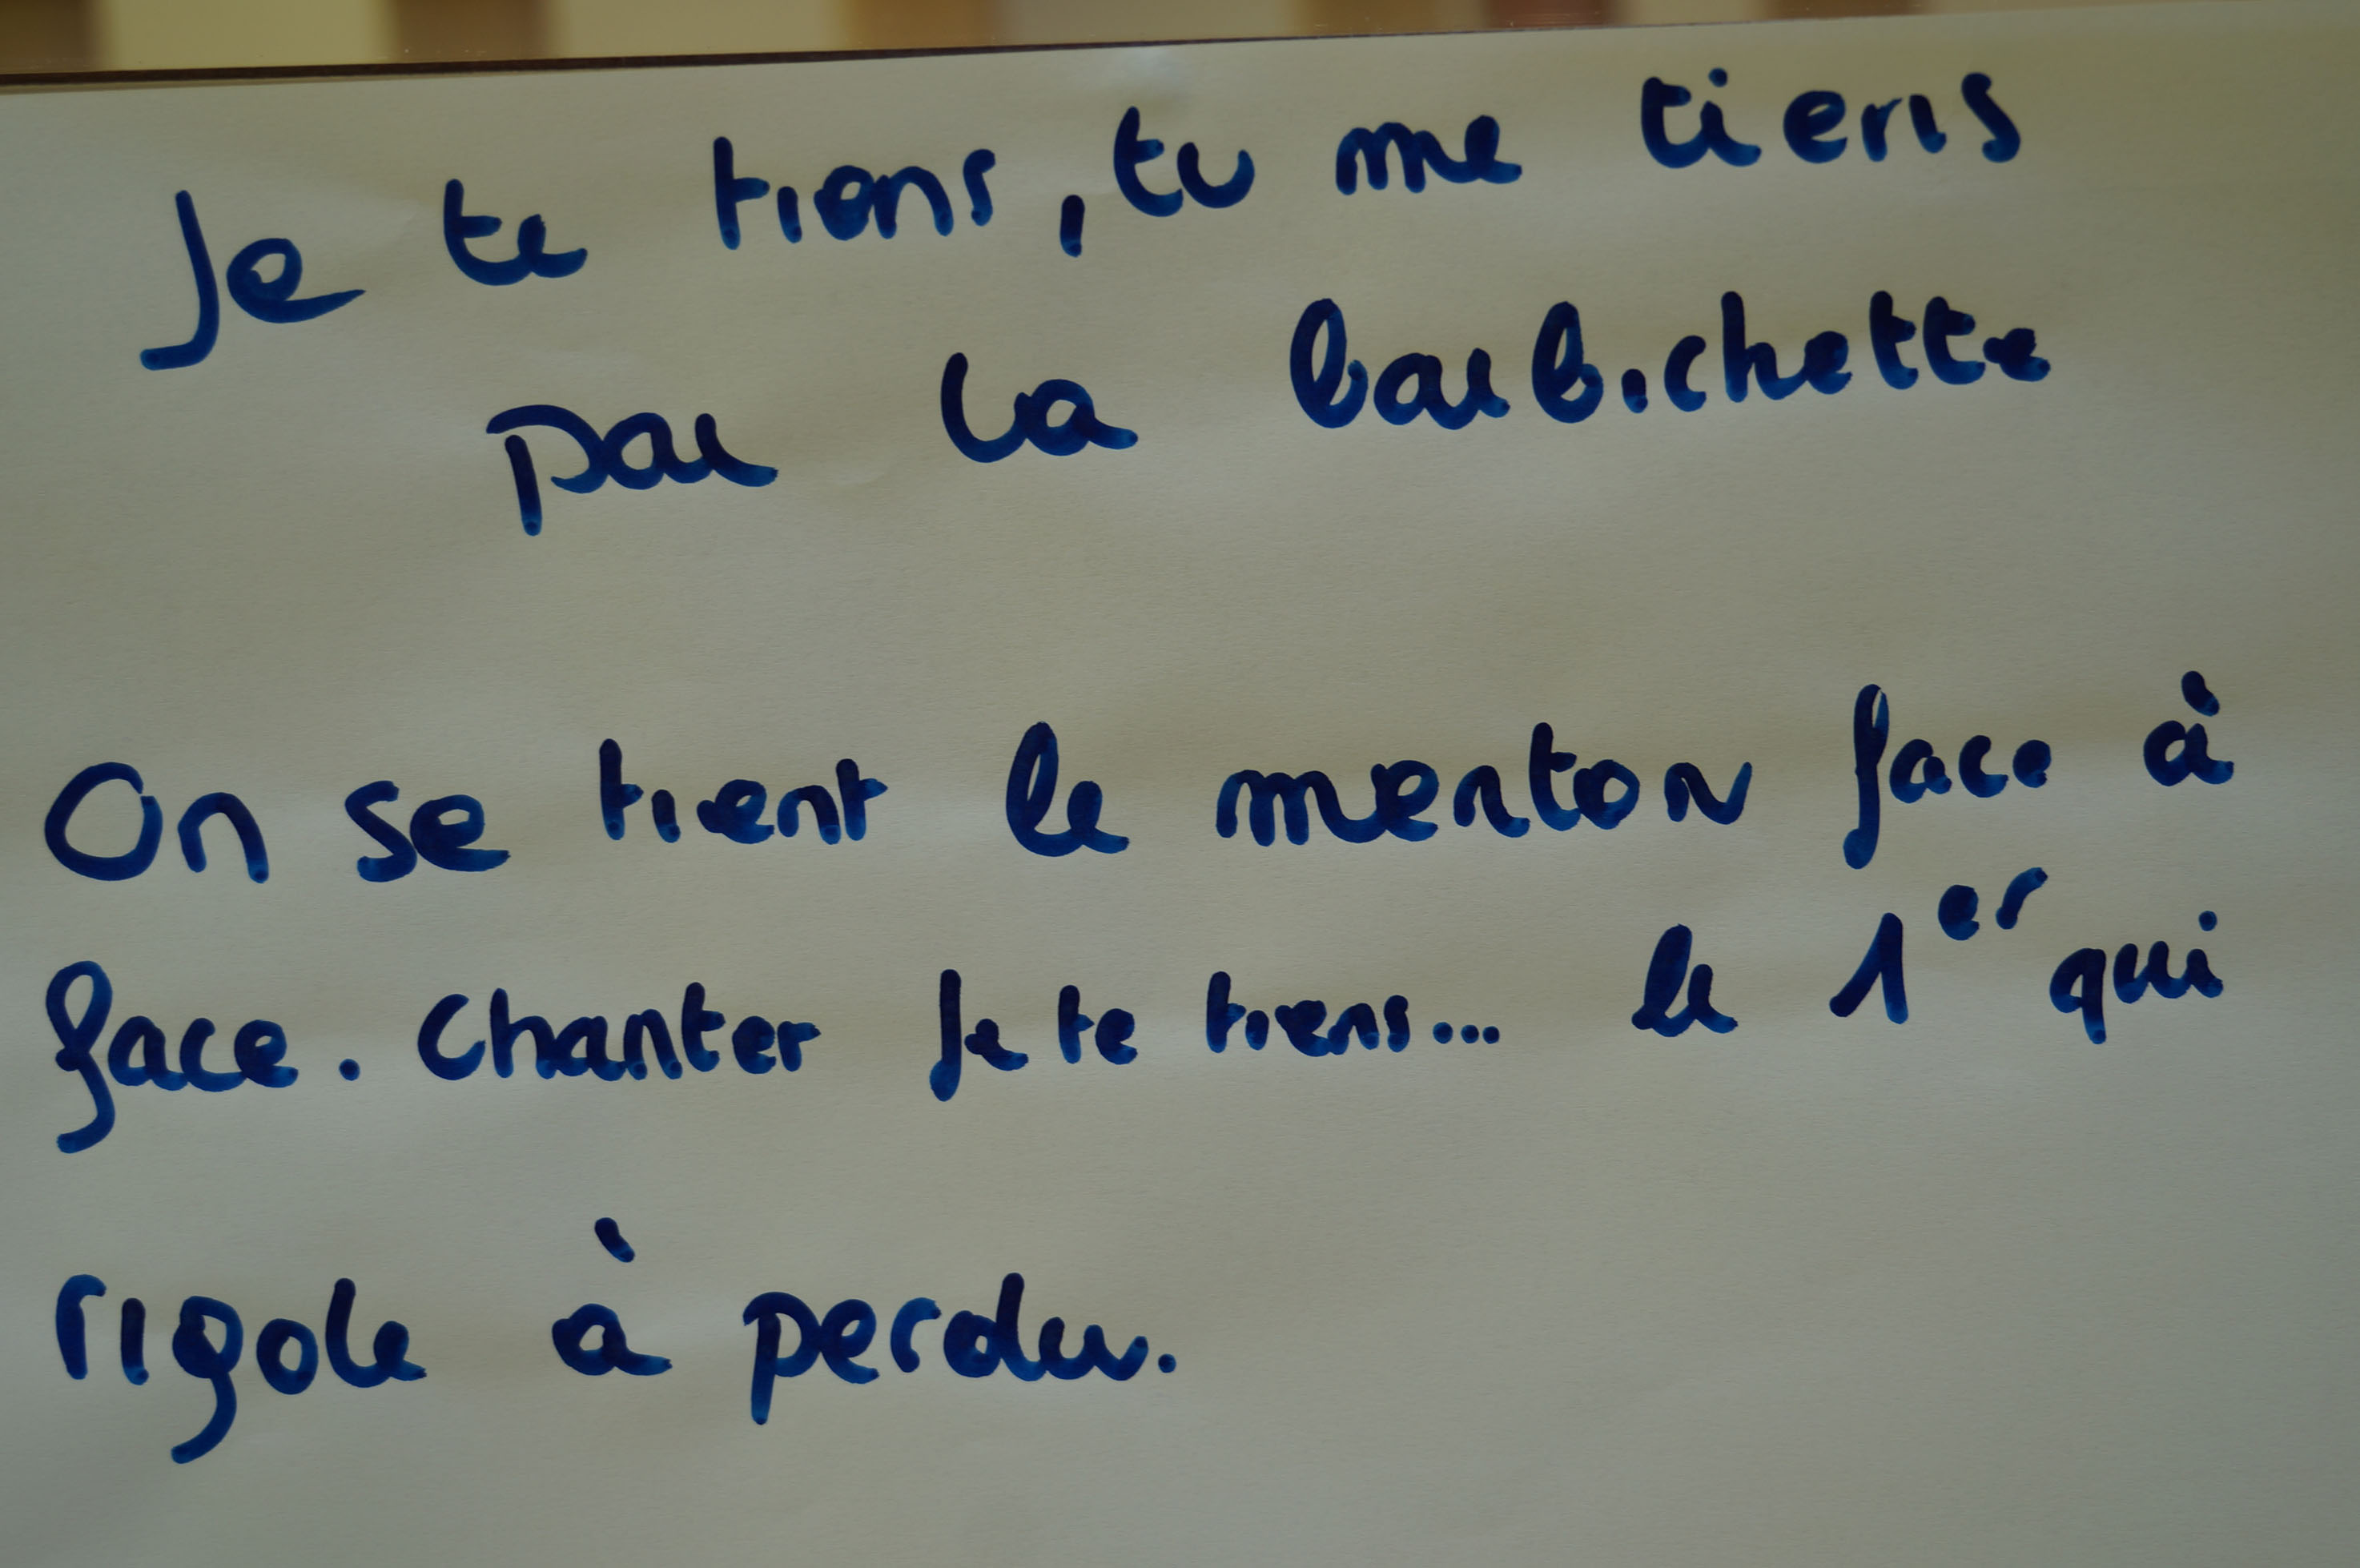 Je te tiens, tu me tiens
par la barbichette
On se tient le menton face à
face. Chanter Je te tiens... le 1er qui
rigole à perdu.